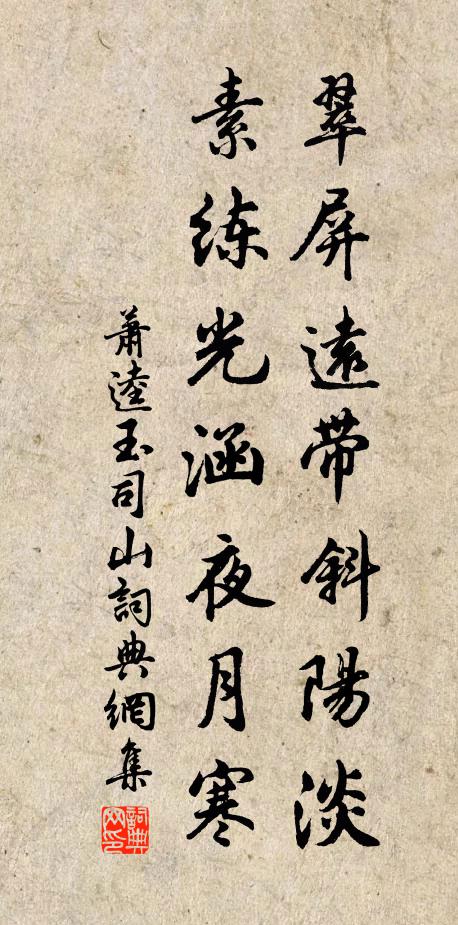 翠屏遠帶斜陽淡
素练光涵夜月寒
蕭逵玉司山詞典網集
詞典网印